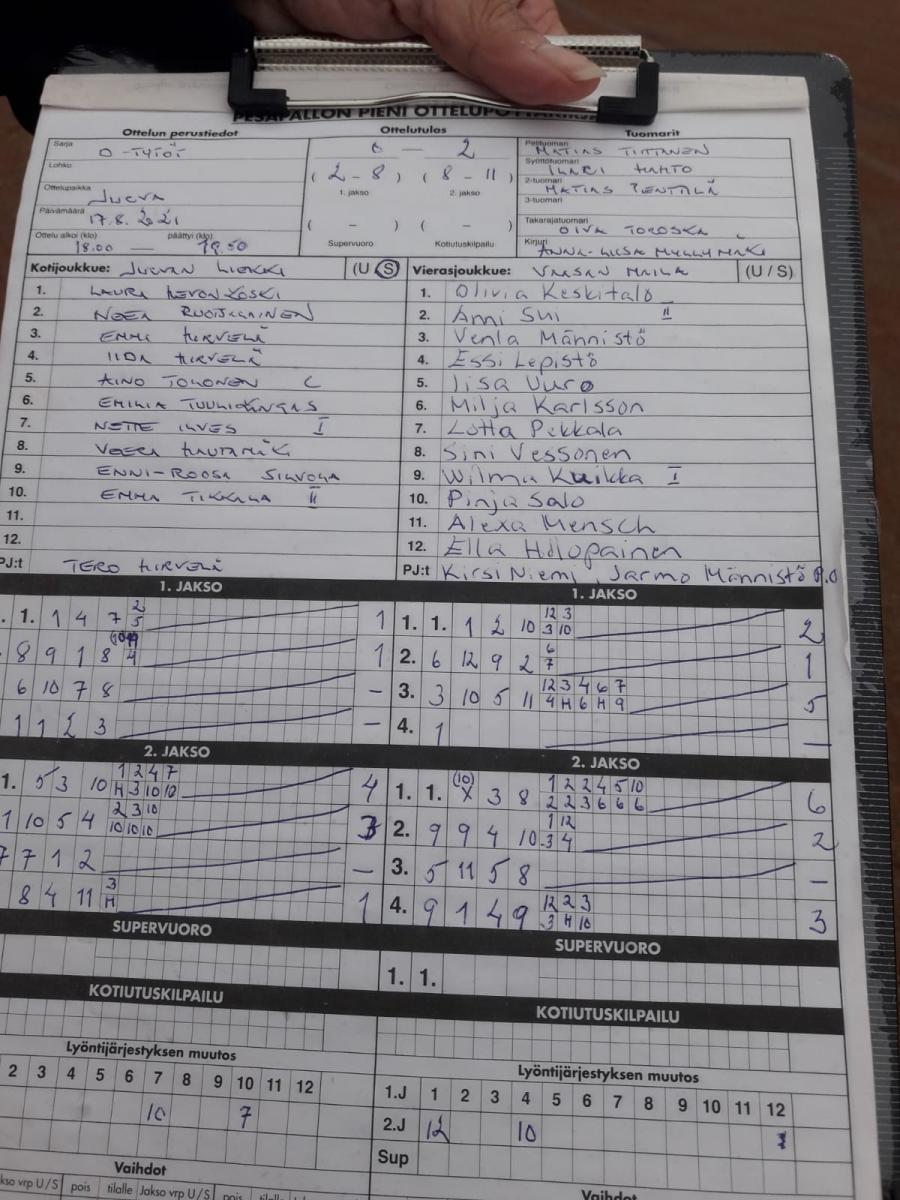 PESÄPALLON PIENI OTTELUPÖYTÄKIRJA
Ottelun perustiedot
Sarja
D-TYTÖT
Lohko
Ottelupaikka
JURVA
Päivämäärä
17.8.2021
Ottelu alkoi (klo) päättyi (klo)
18.00 — 19.50
Ottelutulos
0 — 2
(2-8) (8-11)
1. jakso 2. jakso
( - ) ( - )
Supervuoro Kotiutuskilpailu
Tuomarit
Pelituomari
MATIAS TIITTANEN
Syöttötuomari
ILKARI HUHTO
2-tuomari
MATIAS PENTTILÄ
3-tuomari
Takarajatuomari
OIVA TOROSKA
Kirjuri
ANNA-LIISA MYLLYMÄKI
Kotijoukkue: JURVAN LIEKKI (U/S)
1. LAURA LEVONKOSKI
2. NOEA
3. EMMA HIRVELÄ
4. IIDA HIRVELÄ
5. AINO TOLONEN C
6. EMILIA TUULIKANGAS
7. NETTE ILVES I
8. VEERA HAUTAMÄKI
9. ENNI-ROOSA SILVOLA
10. EMMA TIKKALA II
11.
12.
PJ:t TERO HIRVELÄ
Vierasjoukkue: VAASAN MAILA (U / S)
1. Olivia Keskitalo
2. Anni Sui II
3. Venla Männistö
4. Essi Lepistö
5. Iisa Vuro
6. Milja Karlsson
7. Lotta Pekkala
8. Sini Vessonen
9. Wilma Kuikka I
10. Pinja Salo
11. Alexa Mensch
12. Ella Holopainen
PJ:t Kirsi Niemi, Jarmo Männistö P.O
1. JAKSO
1. 1 4 7 2 5 1
8 9 1 8 4 1
6 10 7 8 –
1 1 2 3 –
1. JAKSO
1. 1. 1 2 10 12 3 3 10 2
2. 6 12 9 2 6 7 1
3. 3 10 5 11 12 3 4 6 7 4 H 6 H 9 5
4. 1 –
2. JAKSO
1. 5 3 10 1 2 4 7 H 3 10 10 4
1 10 5 4 2 3 10 10 10 10 3
7 7 1 2 –
8 4 11 3 H 1
2. JAKSO
1. 1. (10) X 3 8 1 2 2 4 5 10 2 2 3 6 6 6 6
2. 9 9 4 10 1 12 3 4 2
3. 5 11 5 8 –
4. 9 1 4 9 12 2 3 3 H 10 3
SUPERVUORO
SUPERVUORO
1. 1.
KOTIUTUSKILPAILU
KOTIUTUSKILPAILU
Lyöntijärjestyksen muutos
2 3 4 5 6 7 8 9 10 11 12
10 7
Lyöntijärjestyksen muutos
1.J 1 2 3 4 5 6 7 8 9 10 11 12
2.J 12 10 1
Sup
Vaihdot
jakso vrp U/S pois tilalle Jakso vrp U/S pois
Vaihdot